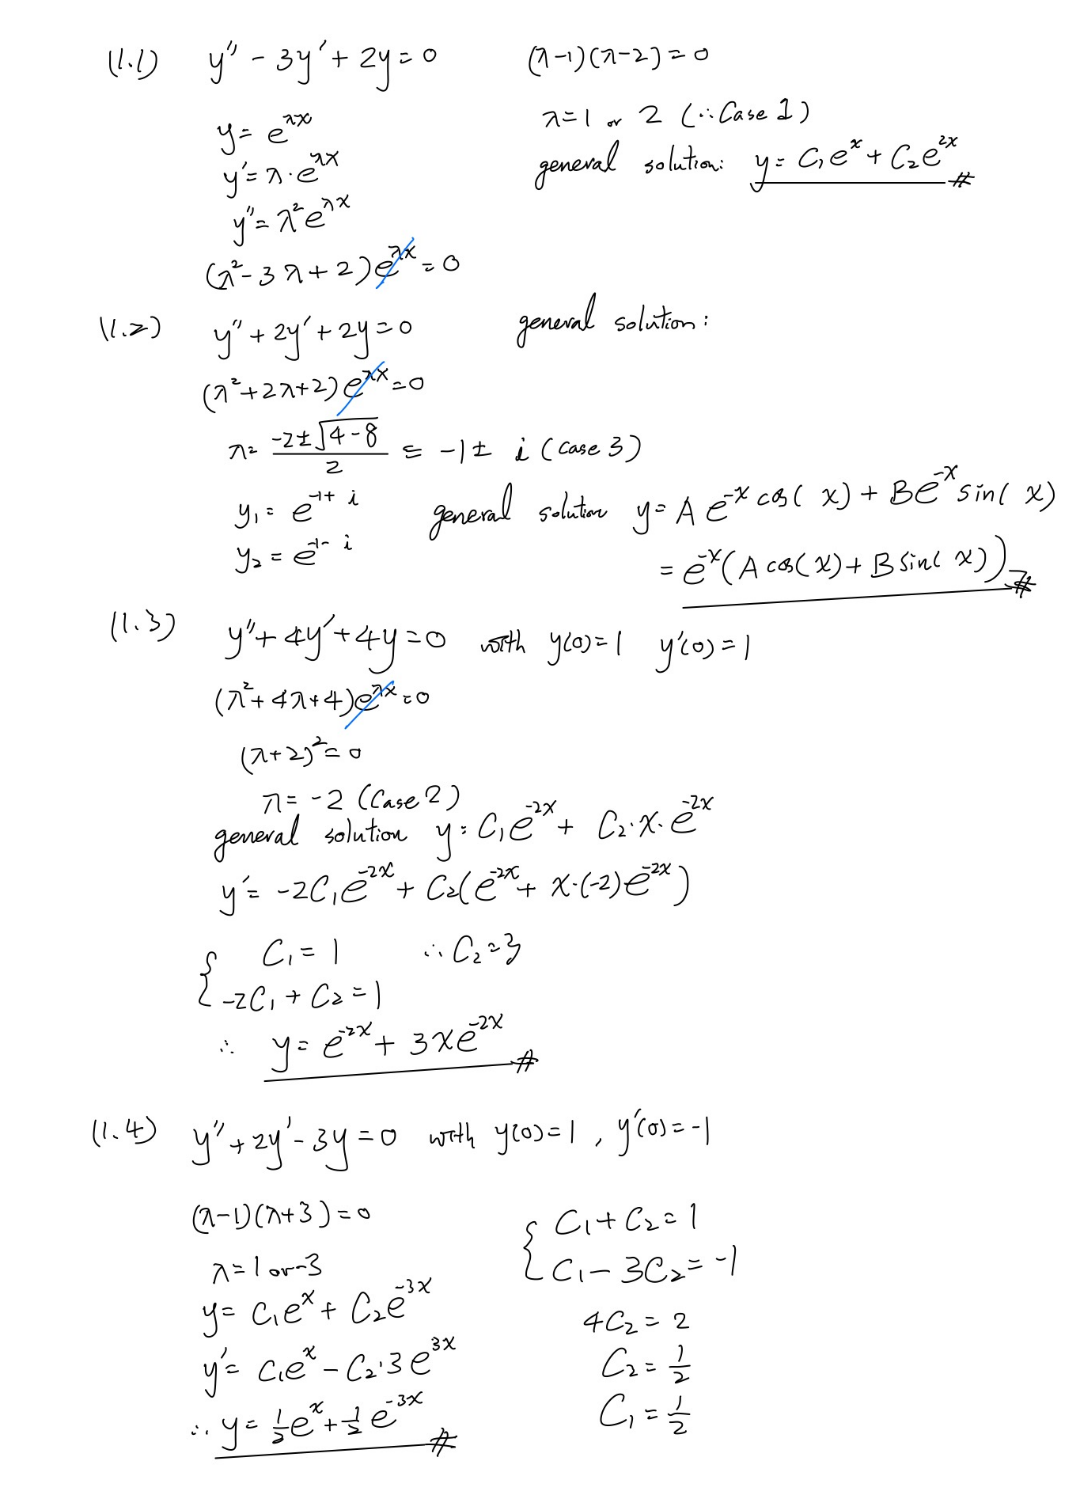 (1.1) y'' - 3y' + 2y = 0
y = e^{λx}
y' = λ·e^{λx}
y'' = λ²e^{λx}
(λ² - 3λ + 2)e^{λx} = 0
(λ-1)(λ-2) = 0
λ = 1 or 2 (∵ Case 1)
general solution: y = C₁e^x + C₂e^{2x} #
(1.2) y'' + 2y' + 2y = 0
(λ² + 2λ + 2)e^{λx} = 0
general solution:
λ = \frac{-2 ± √(4-8)}{2} = -1 ± i (case 3)
y₁ = e^{-1+ i}
y₂ = e^{-1- i}
general solution y = A e^{-x} cos( x) + B e^{-x} sin( x)
= e^{-x}(A cos(x) + B sin( x)) #
(1.3) y'' + 4y' + 4y = 0 with y(0) = 1 y'(0) = 1
(λ² + 4λ + 4)e^{λx} = 0
(λ+2)² = 0
λ = -2 (Case 2)
general solution y = C₁e^{-2x} + C₂·x·e^{-2x}
y' = -2C₁e^{-2x} + C₂(e^{-2x} + x·(-2)e^{-2x})
{ C₁ = 1 ∴ C₂ = 3
-2C₁ + C₂ = 1
∴ y = e^{-2x} + 3xe^{-2x} #
(1.4) y'' + 2y' - 3y = 0 with y(0) = 1 , y'(0) = -1
(λ-1)(λ+3) = 0
λ = 1 or -3
y = C₁e^x + C₂e^{-3x}
y' = C₁e^x - C₂·3e^{3x}
∴ y = ½e^x + ½e^{-3x} #
{ C₁ + C₂ = 1
C₁ - 3C₂ = -1
4C₂ = 2
C₂ = ½
C₁ = ½